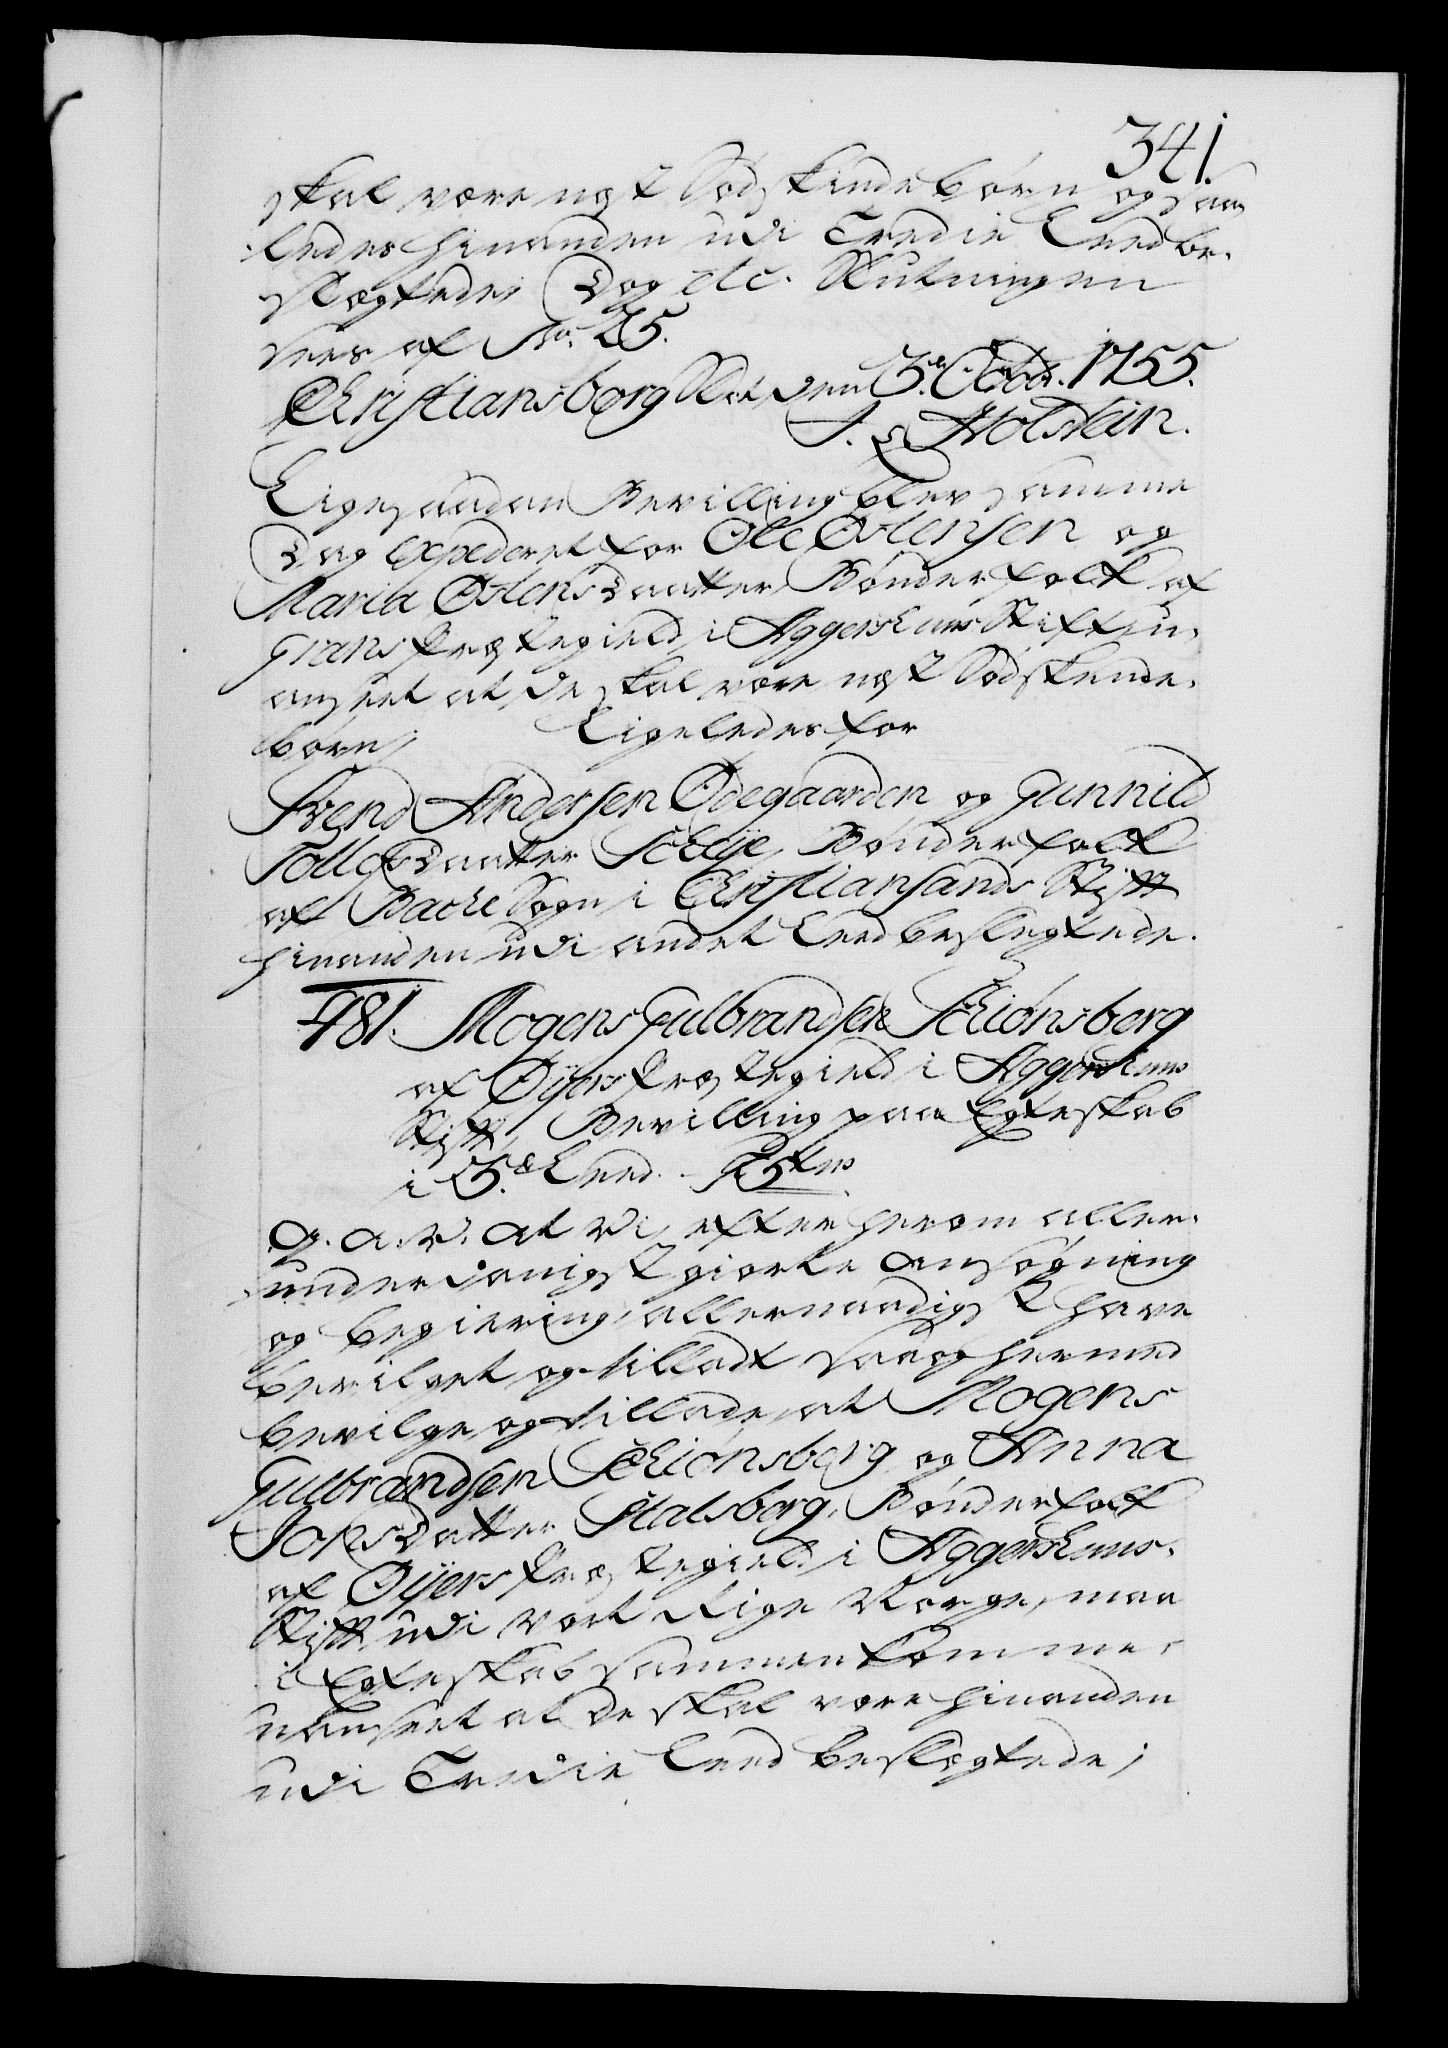 341.
skal være næst Sødskindebørn og saa
ledes hinanden udi Tredie Leed be-
slægtede; Dog etc. Slutningen
sees af No. 25.
Christiansborg Slot den 3de Octobr. 1755.
J. L. Holstein.
Ligesaadan Bevilling blev samme
Dag expederet for Ole Østensen og
Maria Østensdaatter, Bønderfolk af
Grans Præstegield i Aggershuus Stift, u-
anseet at de skal være næst Sødskende-
børn; Ligeledes for
Svend Andersen Ødegaarden og Gunnild
Tollofsdaatter Schye, Bønderfolk
af Bache Sogn i Christiansands Stift
hinanden udi andet Leed beslegtede.
481. Mogens Gulbrandsen Schiønsberg
af Øyers Præstegield i Aggershuus
Stift, Bevilling paa Egteskab
i 3die Leed.
G. A. V. At Vi, efter herom aller-
underdanigst giorte Ansøgning
og Begiering, allernaadigst have
bevilget og tilladt, saa og hermed
bevilge og tillade, at Mogens
Gulbrandsen Schiønsberg og Anna
Jonsdatter Stalsberg, Bønderfolk
af Øyers Præstegield i Aggershuus-
Stift udi Vort Rige Norge, maa
i Egteskab sammenkomme,
uanseet at de skal være hinanden
udi Tredie Leed beslægtede;